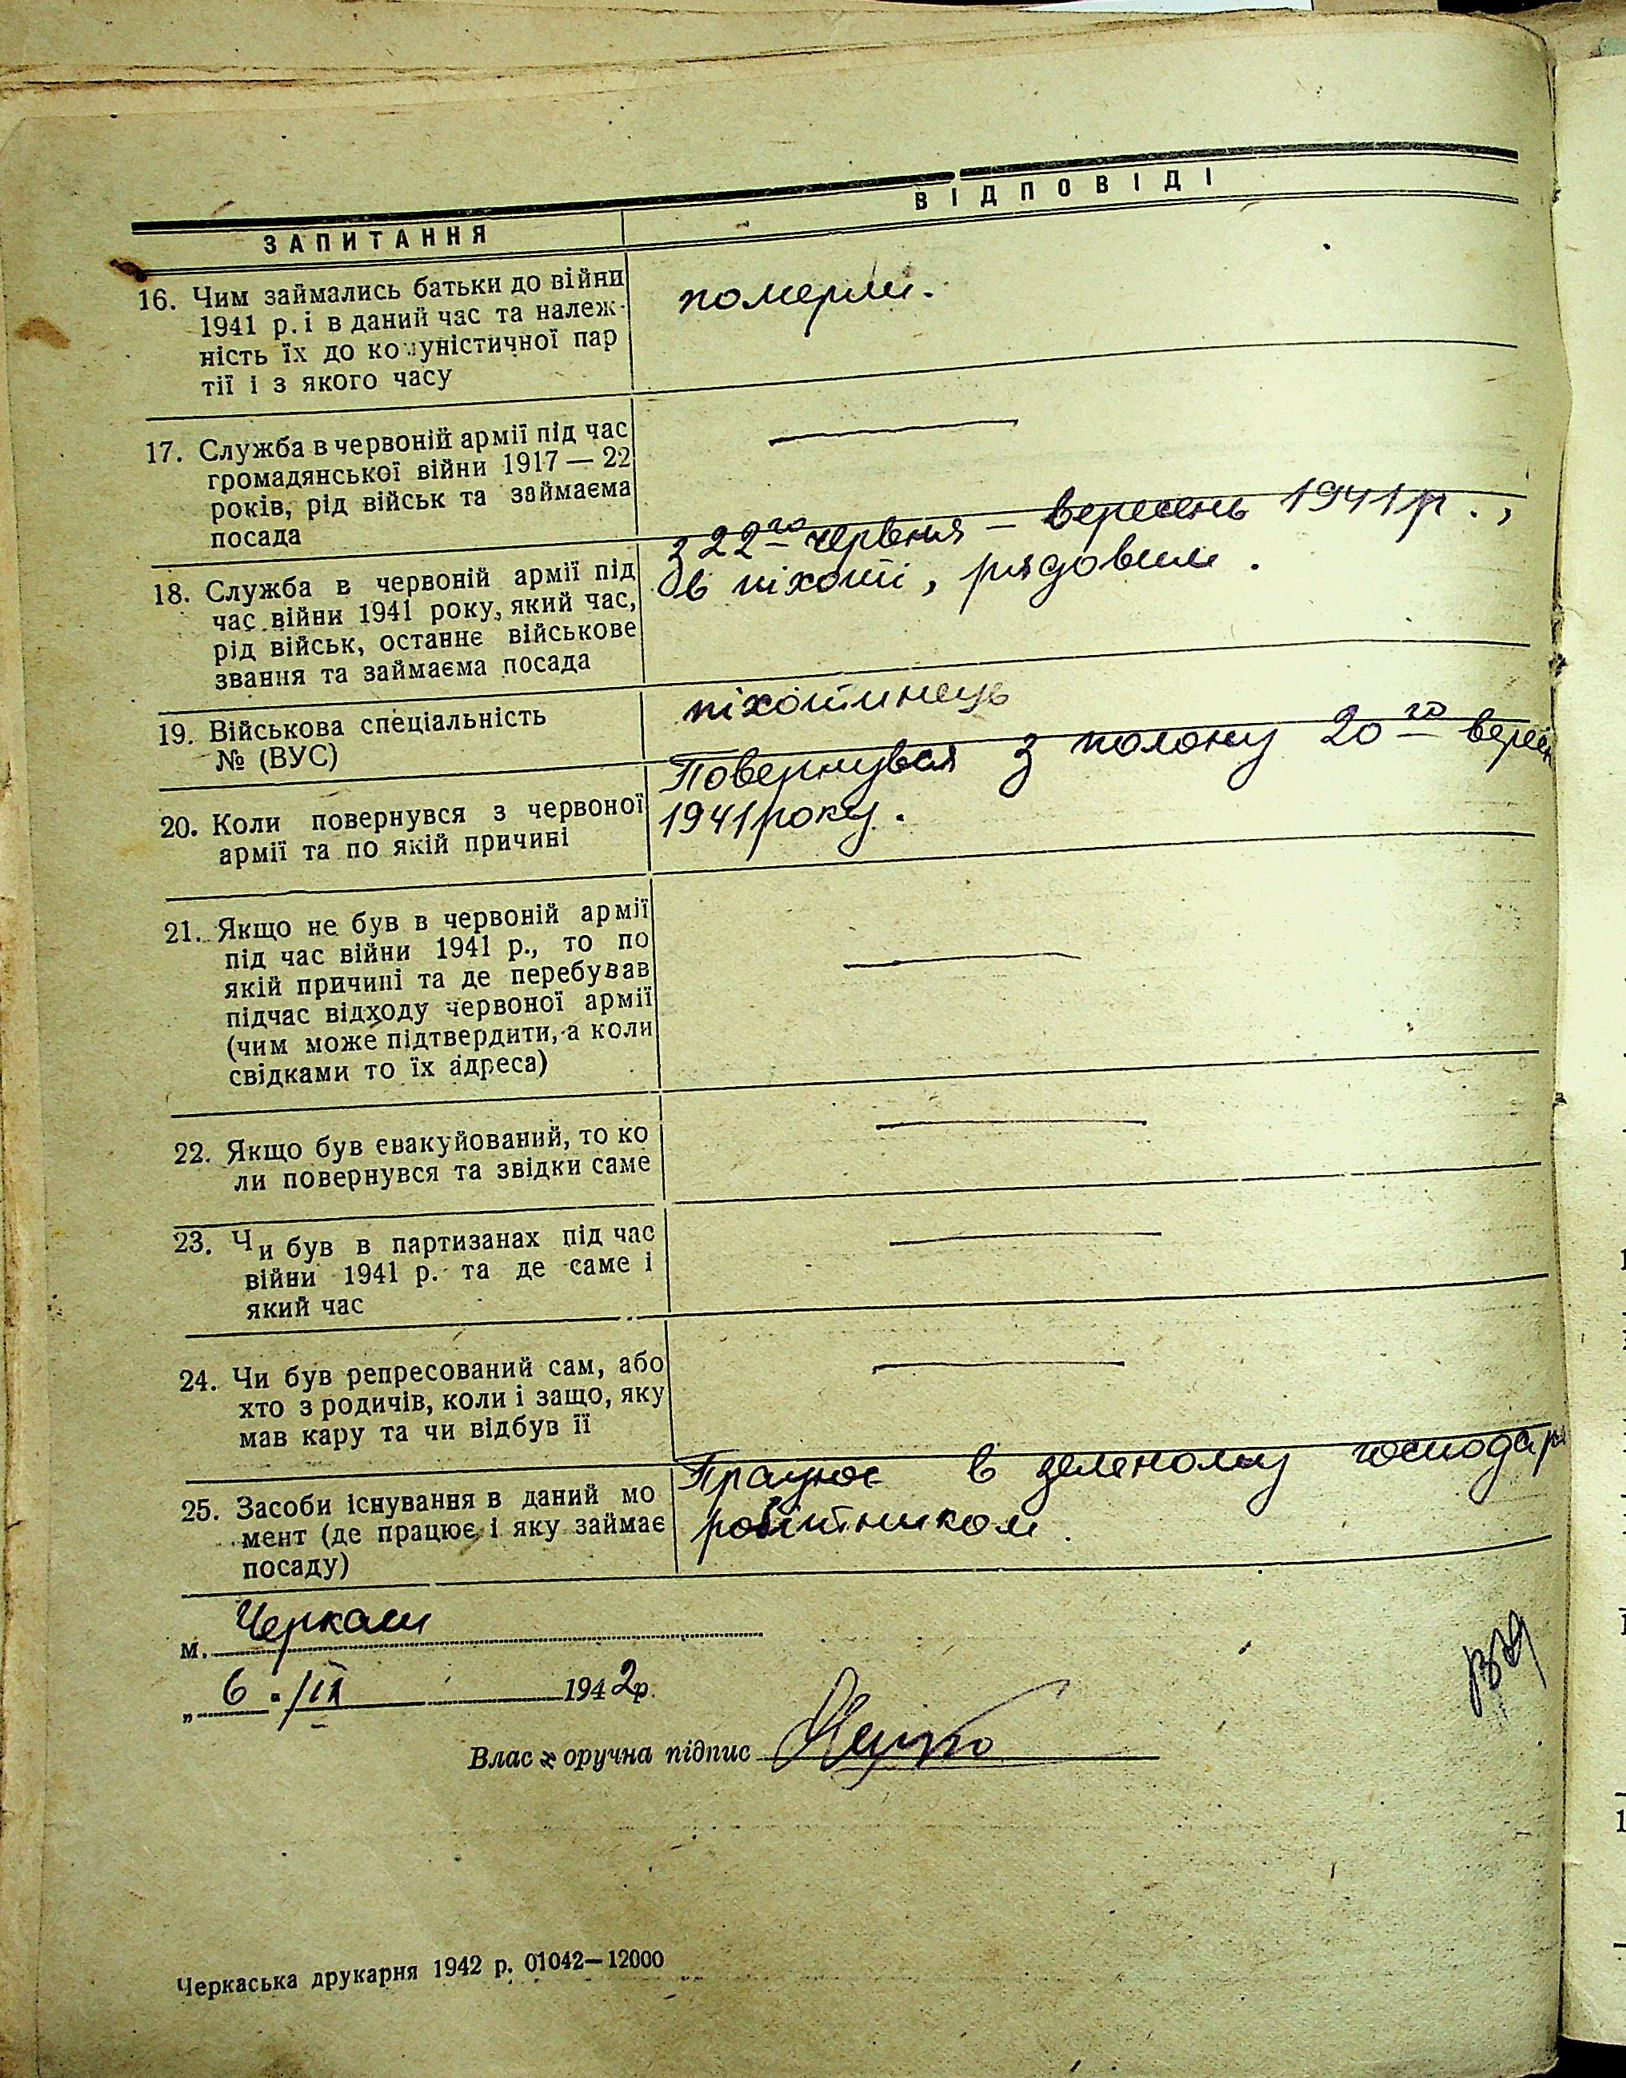 ЗАПИТАННЯ
ВІДПОВІДІ
16. Чим займались батьки до війни
1941 р. і в даний час та належ-
ність їх до комуністичної пар
тії і з якого часу
померли.
17. Служба в червоній армії під час
громадянської війни 1917 — 22
років, рід військ та займаєма
посада
18. Служба в червоній армії під
час війни 1941 року, який час,
рід військ, останнє військове
звання та займаєма посада
з 22го червня – вересень 1941 р.,
в піхоті, рядовим.
19. Військова спеціальність
№ (ВУС)
піхотинець
20. Коли повернувся з червоної
армії та по якій причині
Повернувся з полону 20го вересн
1941 року.
21. Якщо не був в червоній армії
під час війни 1941 р., то по
якій причині та де перебував
підчас відходу червоної армії
(чим може підтвердити, а коли
свідками то їх адреса)
22. Якщо був евакуйований, то ко
ли повернувся та звідки саме
23. Чи був в партизанах під час
війни 1941 р. та де саме і
який час
24. Чи був репресований сам, або
хто з родичів, коли і защо, яку
мав кару та чи відбув її
25. Засоби існування в даний мо
мент (де працює і яку займає
посаду)
Працює в зеленому господар
робітником.
м. Черкаси
„ 6 " III 1942 р.
Влас оручна підпис
Черкаська друкарня 1942 р. 01042—12000